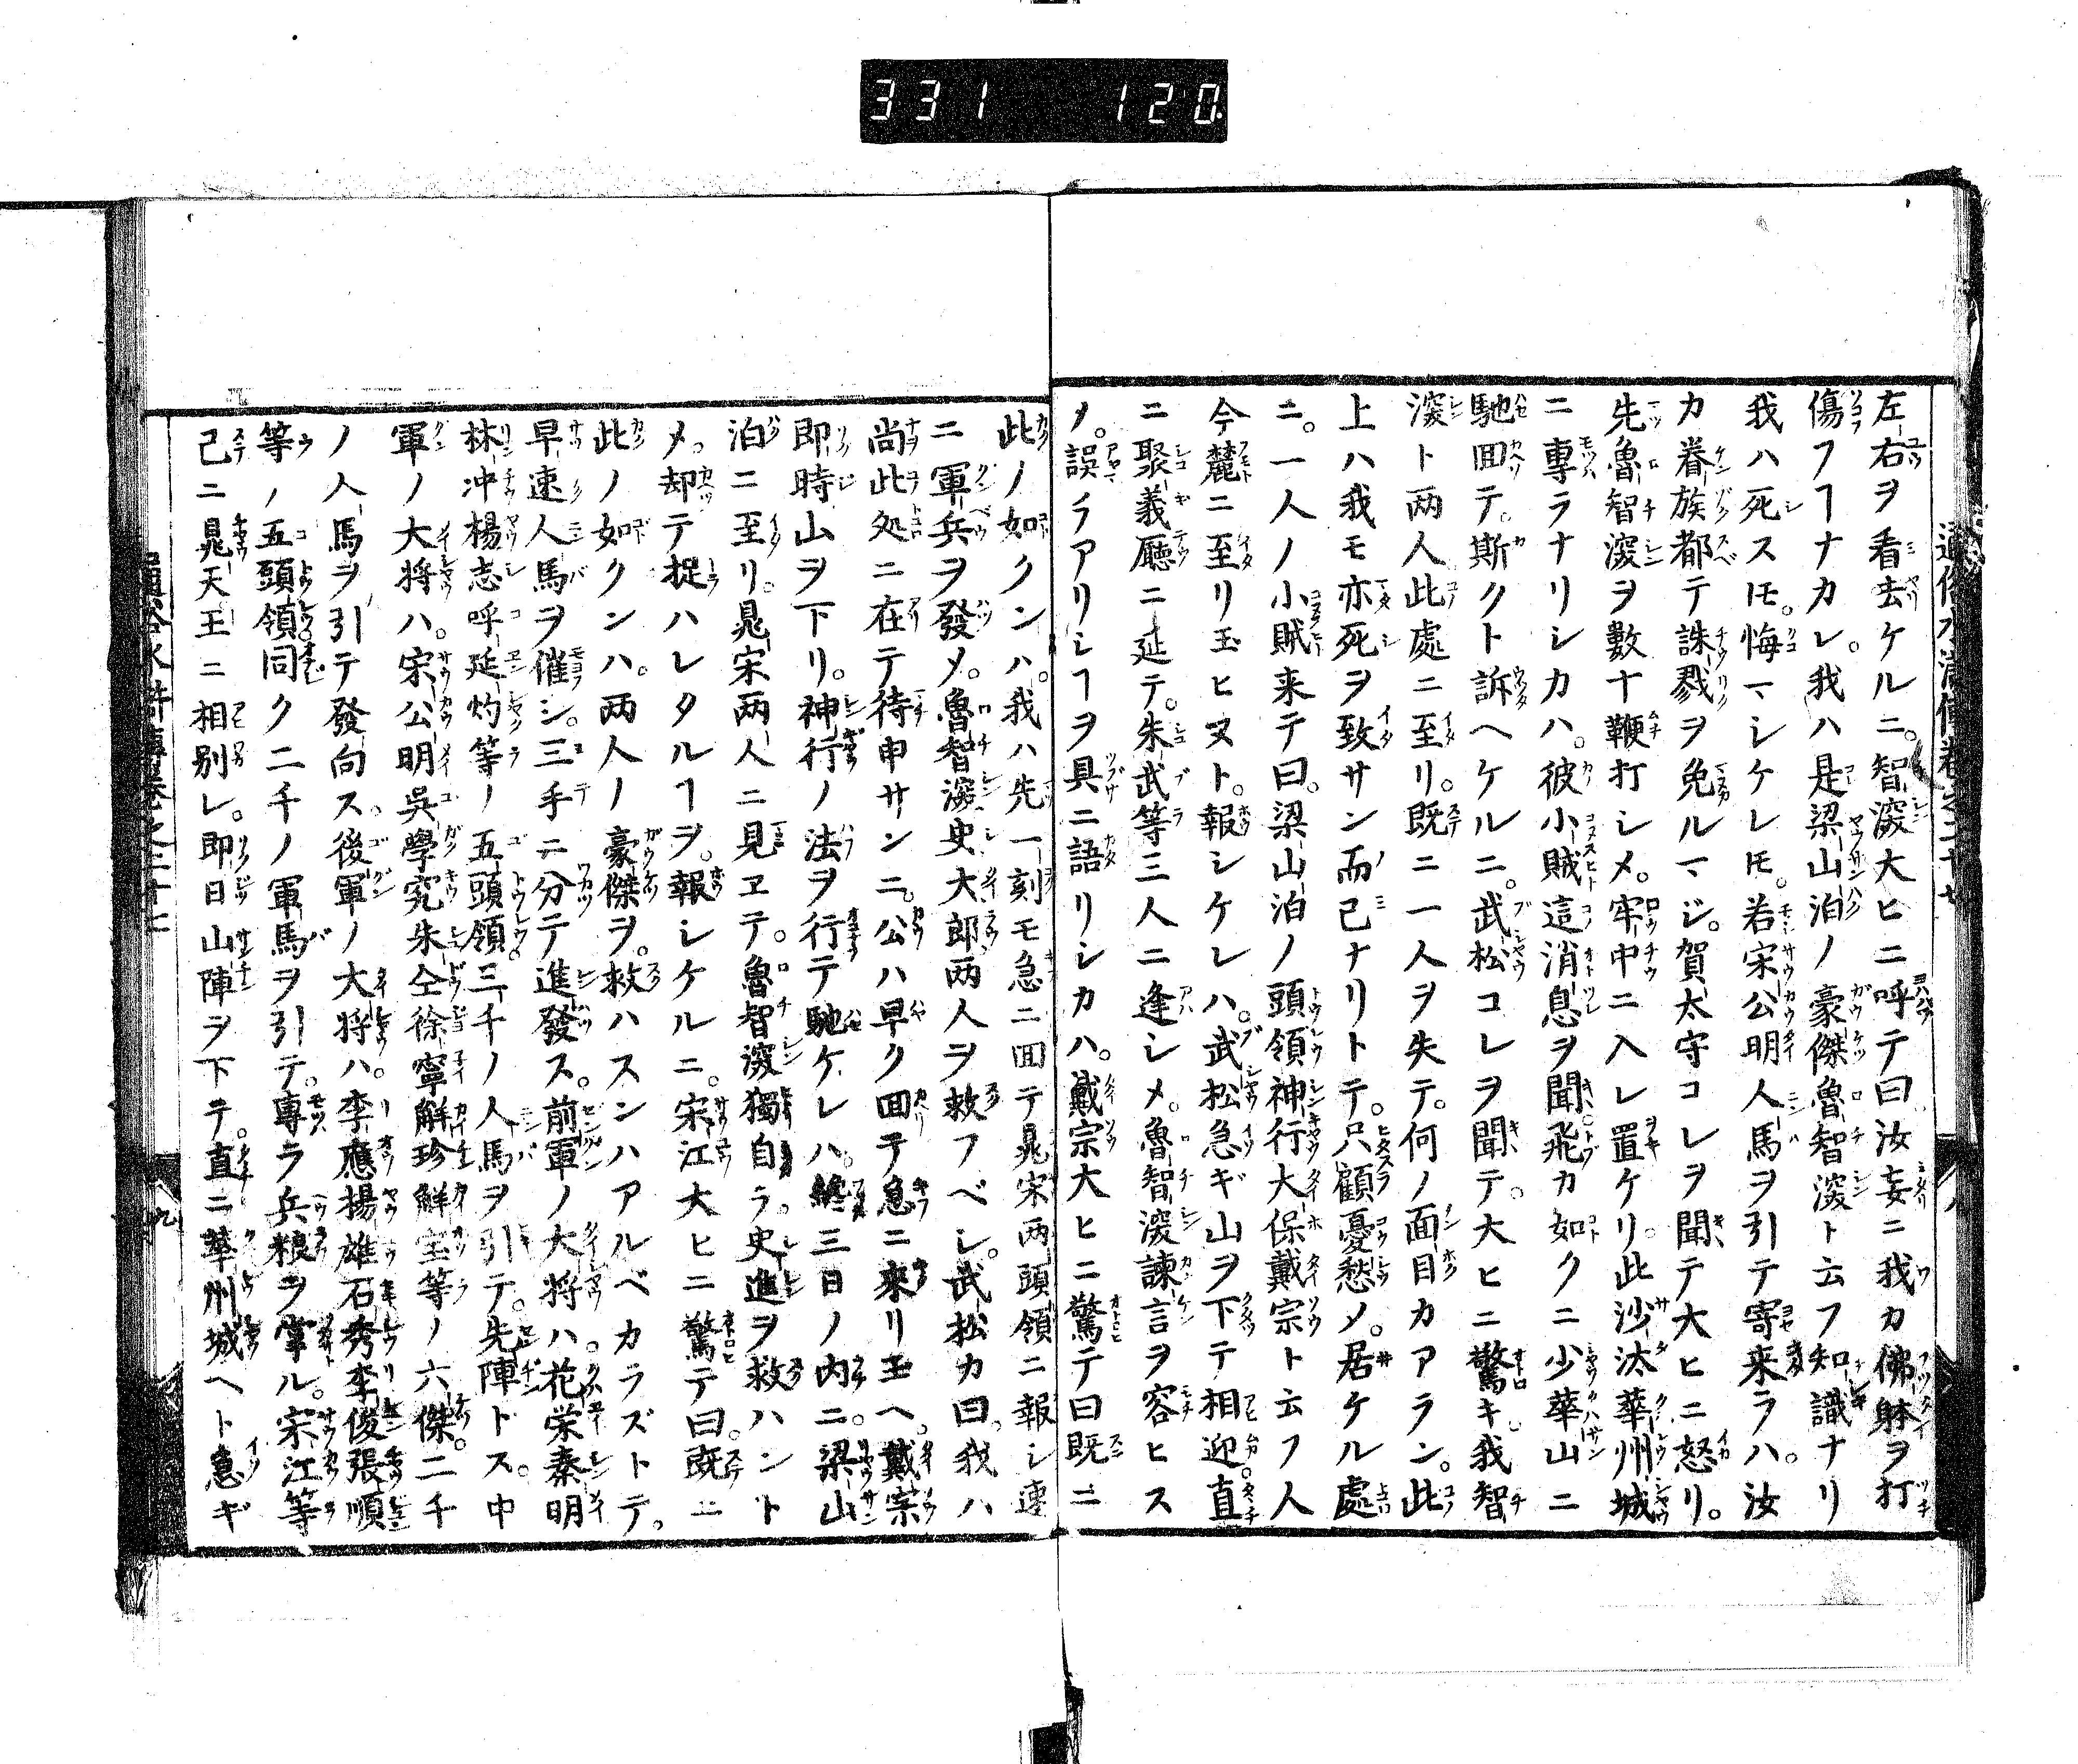 331 120
通俗水滸傳卷之二十七 八
左右ヲ看去ケルニ。智深大ヒニ呼テ曰汝妄ニ我カ佛躰ヲ打
傷フヿナカレ。我ハ是梁山泊ノ豪傑魯智深ト云フ知識ナリ
我ハ死スㇳモ。悔マシケレㇳモ。若宋公明人馬ヲ引テ寄来ラハ。汝
カ眷族都テ誅戮ヲ免ルマジ。賀太守コレヲ聞テ大ヒニ怒リ。
先魯智深ヲ數十鞭打シメ。牢中ニ入レ置ケリ。此沙汰華州城
ニ專ラナリシカハ。彼小賊這消息ヲ聞飛カ如クニ少華山ニ
馳回テ。斯クト訴ヘケルニ。武松コレヲ聞テ。大ヒニ驚キ我智
深ト両人此處ニ至リ。既ニ一人ヲ失テ。何ノ面目カアラン。此
上ハ我モ亦死ヲ致サン而已ナリトテ。只顧憂愁メ。居ケル處
ニ。一人ノ小賊来テ曰。梁山泊ノ頭領神行大保戴宗ト云フ人
今麓ニ至リ玉ヒヌト。報シケレハ。武松急ギ山ヲ下テ相迎。直
ニ聚義廳ニ延テ。朱武等三人ニ逢シメ。魯智深諫言ヲ容ヒス
メ。誤チアリシヿヲ具ニ語リシカハ。戴宗大ヒニ驚テ曰既ニ
此ノ如クンハ。我ハ先一刻モ急ニ回テ晁宋両頭領ニ報シ速
ニ軍兵ヲ發メ。魯智深史大郎両人ヲ救フベシ。武松カ曰。我ハ
尚此処ニ在テ待申サンニ。公ハ早ク回テ急ニ来リ玉ヘ。戴宗
即時山ヲ下リ。神行ノ法ヲ行テ馳ケレハ。終三日ノ内ニ。梁山
泊ニ至リ。晁宋両人ニ見ヱテ。魯智深獨自ラ。史進ヲ救ハント
メ。却テ捉ハレタルヿヲ。報シケルニ。宋江大ヒニ驚テ曰。既ニ
此ノ如クンハ。両人ノ豪傑ヲ。救ハスンハアルベカラズトテ。
早速人馬ヲ催シ。三手ニ分テ進發ス。前軍ノ大将ハ。花栄秦明
林冲楊志呼延灼等ノ五頭領。三千ノ人馬ヲ引テ。先陣トス。中
軍ノ大将ハ。宋公明呉學究朱仝徐寧解珍解宝等ノ六傑。二千
ノ人馬ヲ引テ發向ス。後軍ノ大将ハ。李應揚雄石秀李俊張順
等ノ五頭領同ク二千ノ軍馬ヲ引テ。專ラ兵粮ヲ掌ル。宋江等
己ニ晁天王ニ相別レ。即日山陣ヲ下テ。直ニ華州城ヘト急ギ
通俗水滸傳卷之二十七 九